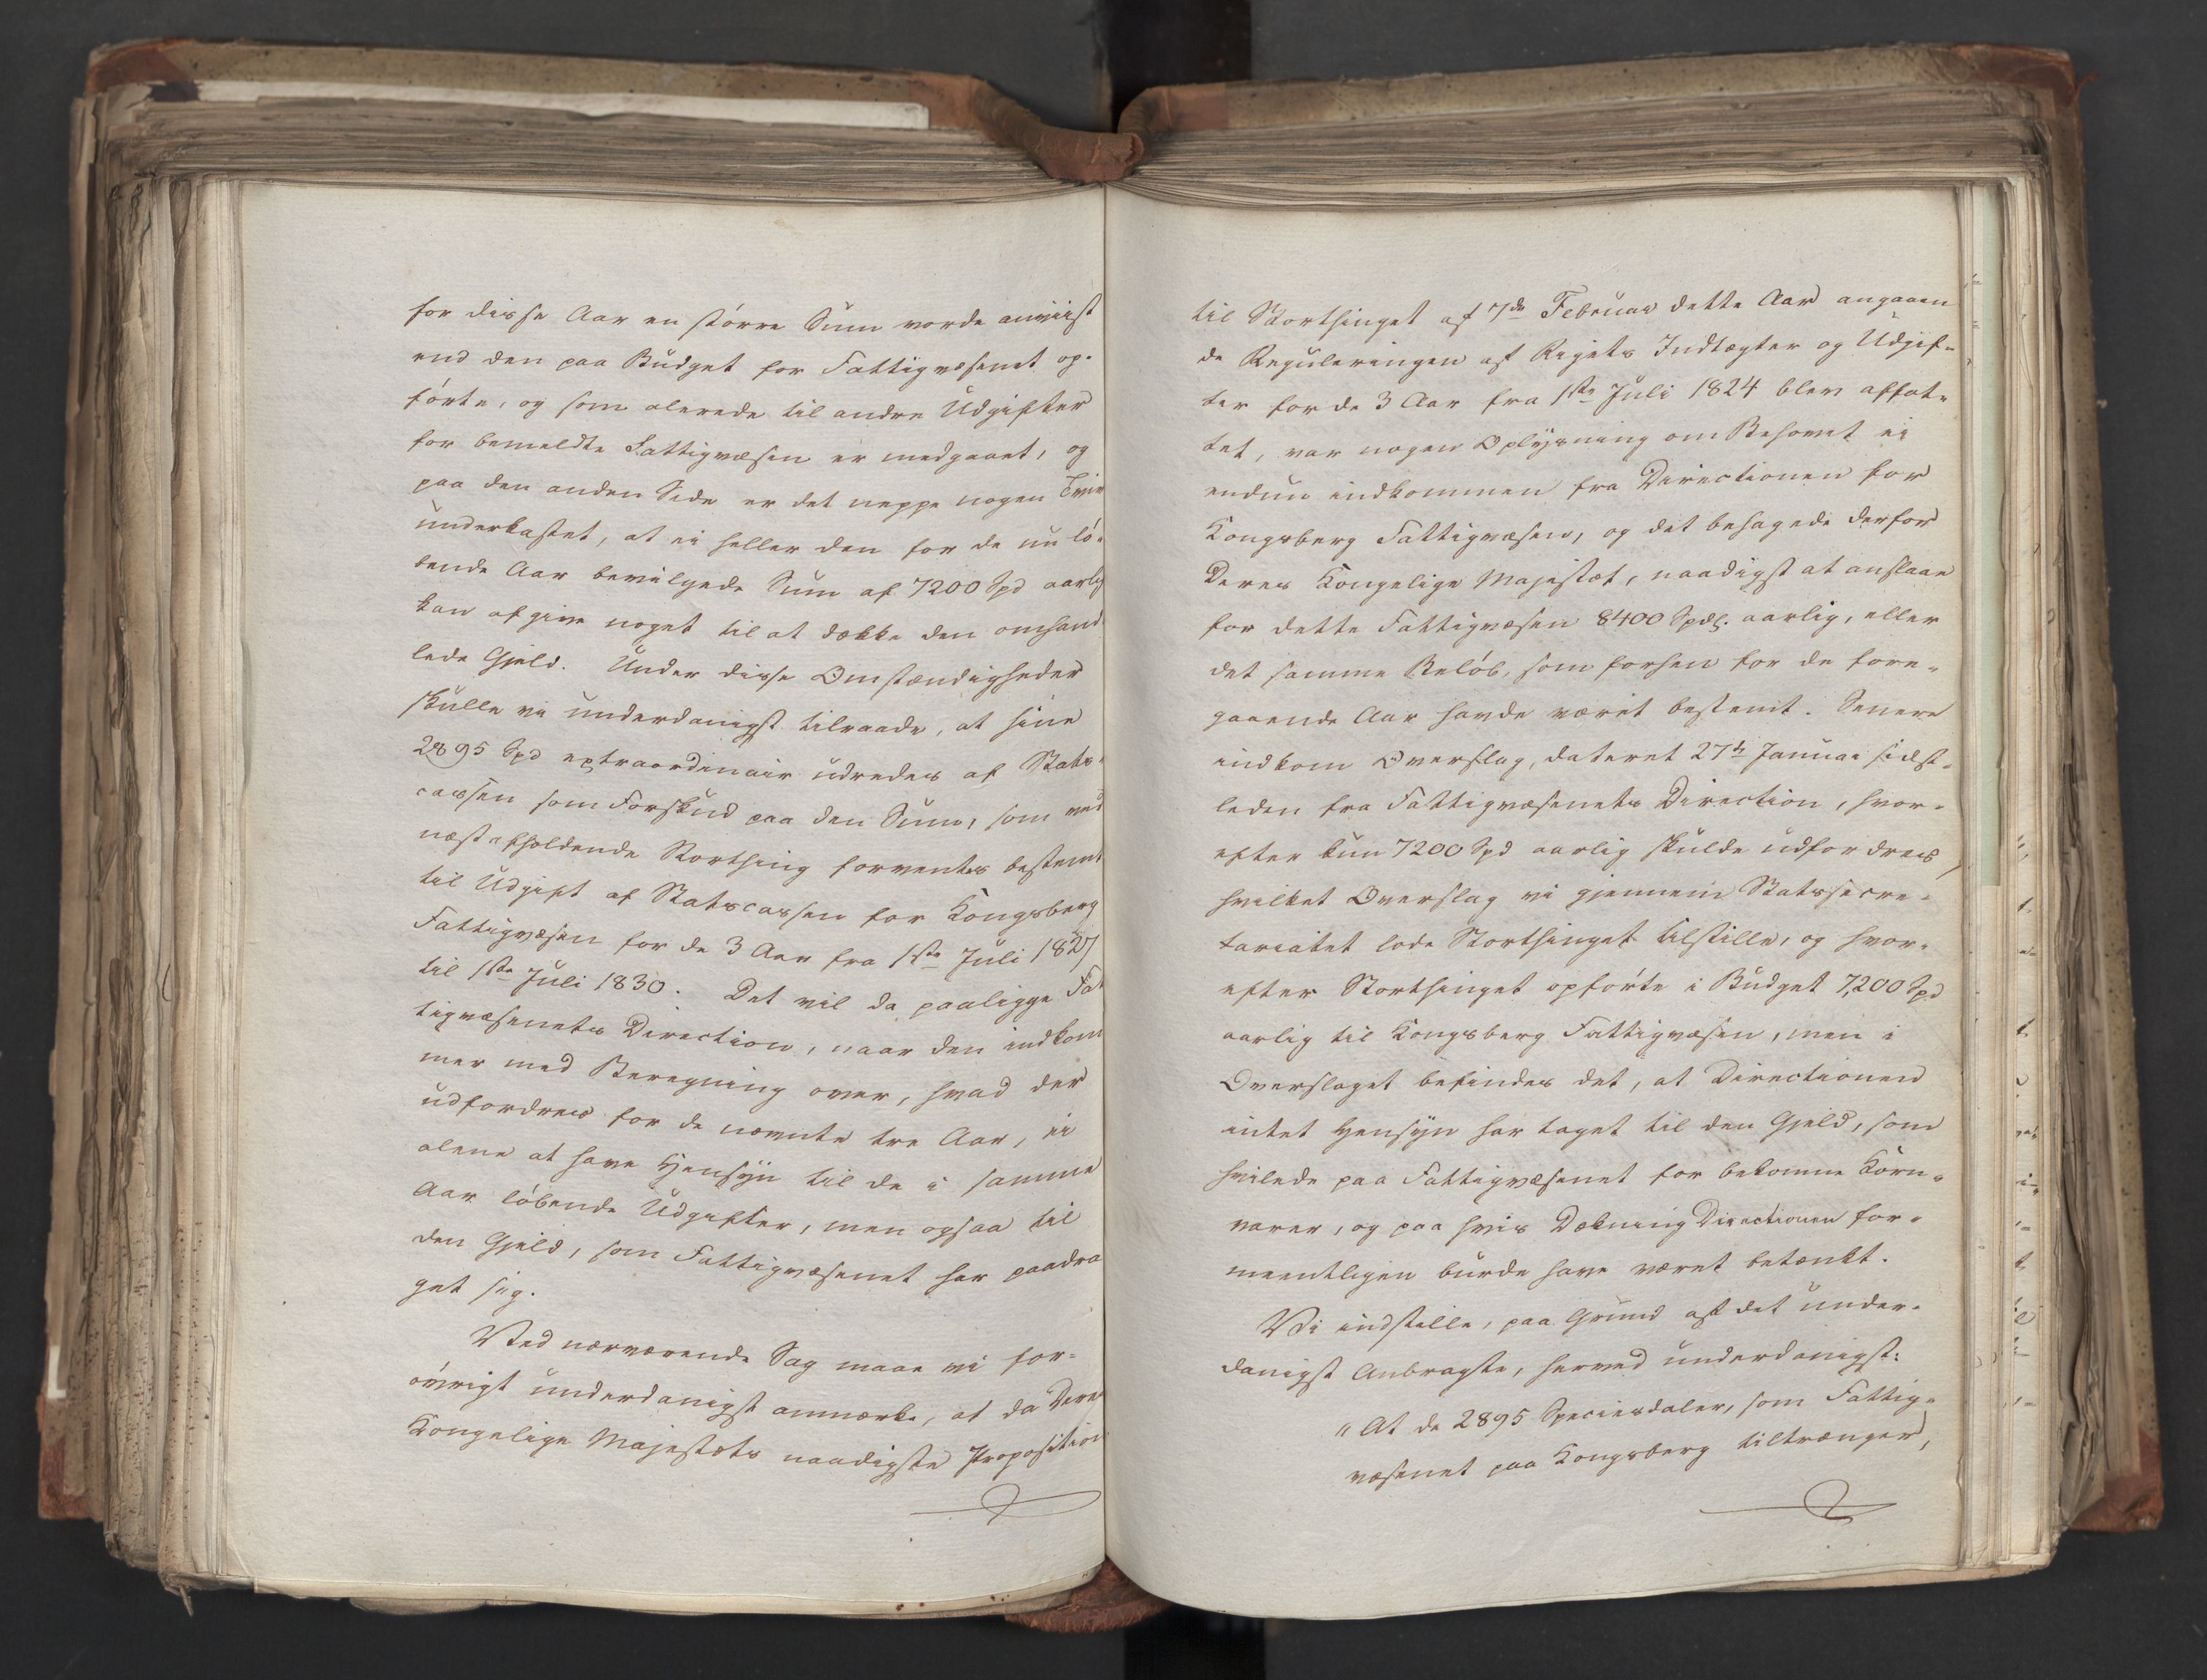 for disse Aar en större Sum vorde anviist
end den paa Budget for Fattigvæsenet op-
förte, og som alerede til andre Udgifter
for bemeldte Fattigvæsen er medgaaet, og
paa den anden Side er det neppe nogen Tviv
underkastet, at ei heller den for de nu lö-
bende Aar bevilgede Sum af 7200 Spd aarlig
kan afgive noget til at dække den omhand
lede Gjeld. Under disse Omstændigheder
skulle vi underdanigst tilraade, at hine
2895 Spd extraordinair udredes af Stats-
cassen som Forskud paa den Sum, som ved
næstafholdende Storthing forventes bestemt
til Udgift af Statscassen for Kongsberg
Fattigvæsen for de 3 Aar fra 1ste Juli 1827
til 1ste Juli 1830. Det vil da paaligge Fat
tigvæsenets Direction, naar den indkom
mer med Beregning over, hvad der
udfordres for de nævnte tre Aar, ei
alene at have Hensyn til de i samme
Aar löbende Udgifter, men ogsaa til
den Gjeld, som Fattigvæsenet har paadra
get sig.
Ved nærværende Sag maae vi for-
övrigt underdanigst anmærke, at da Deres
Kongelige Majestæts naadigste Proposition
til Storthinget af 7de Februar dette Aar angaaen
de Reguleringen af Rigets Indtægter og Udgif-
ter for de 3 Aar fra 1ste Juli 1824 blev affat-
tet, var nogen Oplysning om Behovet ei
endnu indkommen fra Directionen for
Kongsberg Fattigvæsen, og det behagede derfor
Deres Kongelige Majestæt, naadigst at anslaae
for dette Fattigvæsen 8400 Spdlr. aarlig, eller
det samme Belöb, som forhen for de fore-
gaaende Aar havde været bestemt. Senere
indkom Overslag, dateret 27de Januar sidst-
leden fra Fattigvæsenets Direction, hvor-
efter kun 7200 Spd aarlig skulde udfordres,
hvilket Overslag vi gjennem Statssecre-
tariatet lode Storthinget tilstille, og hvor-
efter Storthinget opförte i Budget 7,200 Spd
aarlig til Kongsberg Fattigvæsen, men i
Overslaget befindes det, at Directionen
intet Hensyn har taget til den Gjeld, som
hvilede paa Fattigvæsenet for bekomne Korn-
varer, og paa hvis Dækning Directionen for-
meentligen burde have været betænkt.
Vi indstille, paa Grund af det under-
danigst Anbragte, herved underdanigst:
"At de 2895 Speciesdaler, som Fattig-
væsenet paa Kongsberg tiltrænger,